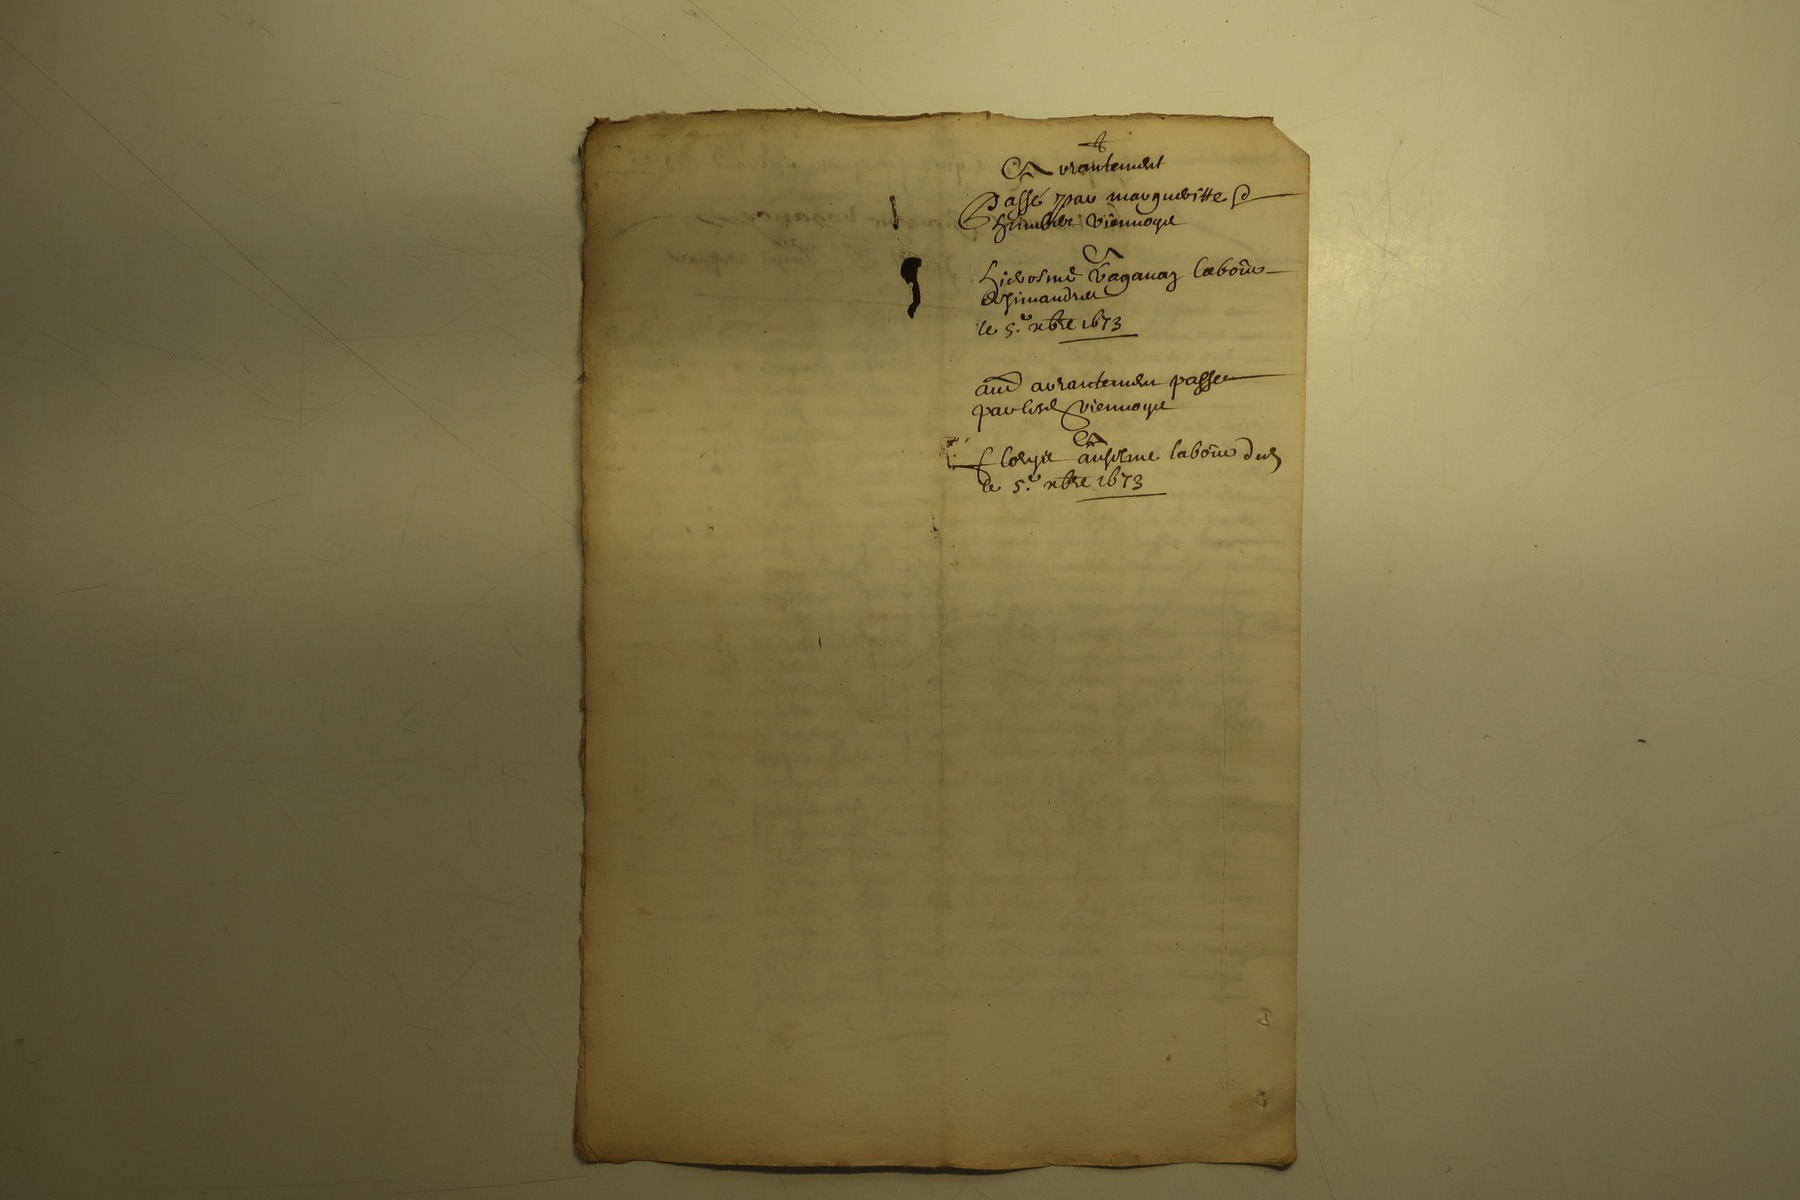 Arrantement
Passé par margueritte &
humbert viennoys
A
hierosme vaganay labour
de simandres
le 5.e xbre 1673
aue arrantement passe
par lesd viennoys
A
Cloryie anselme labour dud
le 5.e xbre 1673